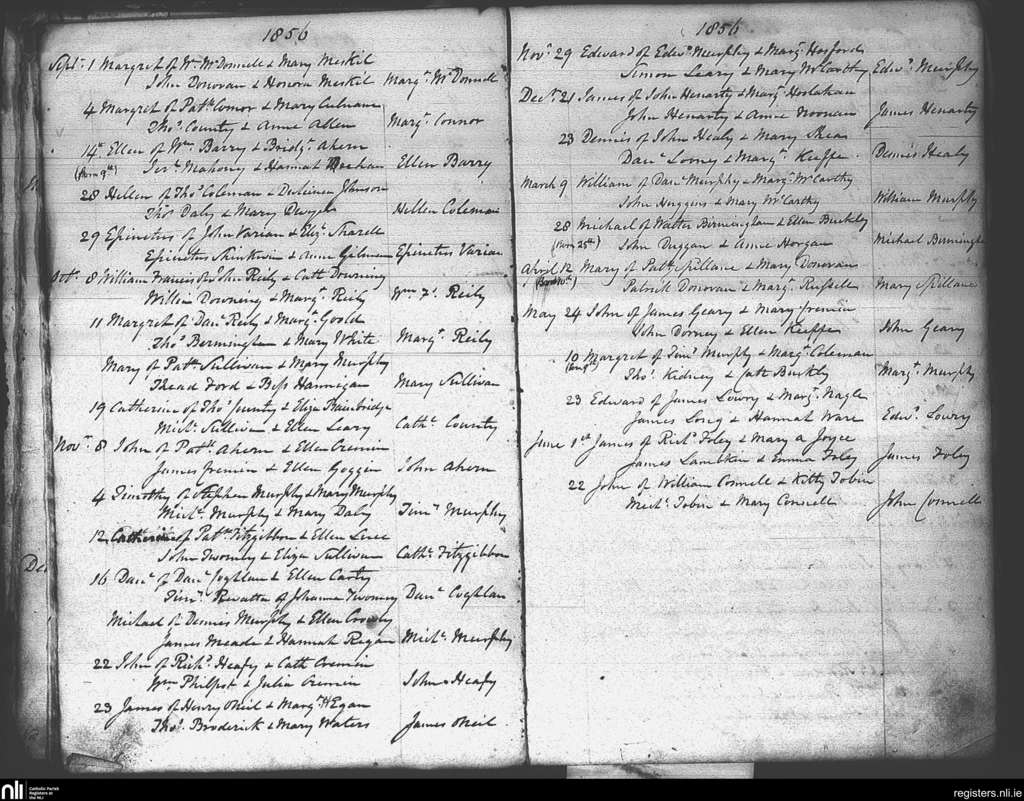 1856
Sept. 1 Margret of Wm McDonnell & Mary Meskil
John Donovan & Honora Meskil Margt. McDonnell
4 Margret of Patk. Connor & Mary Culnane
Thos. County & Anne Allen Margt. Connor
14th Ellen of Wm. Barry & Bridgt. Ahern
(born 9th) Jer. Mahony & Hannah Ellen Barry
28 Hellen of Thos. Coleman & Johnson
Thos Daly & Mary Dwyer Hellen Coleman
29 Epinetus of John Varian & Eliz. Sharell
Epinetus & Anne Gilman Epinetus Varian
Oct. 8 William Francis of John Reily & Cath Downing
William Downing & Margt. Reily Wm. F. Reily
11 Margret of Danl. Reily & Margt. Goold
Thos Bermingham & Mary White Margt. Reily
Mary of Patk. Sullivan & Mary Murphy
Thead Ford & Bess Hannegan Mary Sullivan
19 Catherine of Thos. County & Eliza Bainbridge
Michl. Sullivan & Ellen Leary Cath. County
Novr. 8 John of Patk. Ahern & Ellen Cremin
James Cremin & Ellen Goggin John Ahern
4 Timothy of Stephen Murphy & Mary Murphy
Michl. Murphy & Mary Daly Timy Murphy
12 Catherine of Patk. Fitzgibbon & Ellen
John Twomey & Eliza Sullivan Cath. Fitzgibbon
16 Danl. of Danl. Coghlan & Ellen Carty
Timy. & Johanna Twomey Danl. Coghlan
Michael of Dennis Murphy & Ellen Crowly
James Meade & Hannah Regan Michl. Murphy
22 John of Richd. Heafy & Cath Cremin
Wm Philpot & Julia Cremin John Heafy
23 James of Henry ONeil & Margt. Egan
Thos. Broderick & Mary Waters James ONeil
1856
Novr. 29 Edward of Edwd. Murphy & Margt. Hosford
Simon Leary & Mary McCarthy Edwd. Murphy
Decr. 21 James of John Henarty & Margt. Holahan
John Henarty & Anne Noonan James Henarty
23 Dennis of John Healy & Mary Shea
Danl. & Margt. Keeffe Dennis Healy
March 9 William of Danl. Murphy & Margt. McCarthy
John Huggins & Mary McCarthy William Murphy
28 Michael of Walter Birmingham & Ellen Buckley
(born 25th) John Duggan & Anne Horgan Michael Birmingha
April 12 Mary of Patk. Spillane & Mary Donovan
Patrick Donovan & Margt. Russell Mary Spillane
May 24 John of James Geary & Mary Cremin
John Dorney & Ellen Keeffe John Geary
10 Margret of Timy Murphy & Margt. Coleman
Thos. Kidney & Cath Buckly Margt. Murphy
23 Edward of James Lowry & Margt. Nagle
James Long & Hannah Ware Edwd. Lowry
June 1st James of Richd. Foley & Mary a Joyce
James Lambkin & Emma Foley James Foley
22 John of William Connell & Kitty Tobin
Michl. Tobin & Mary Connell John Connell
nli Catholic Parish
Registers at
the NLI
registers.nli.ie